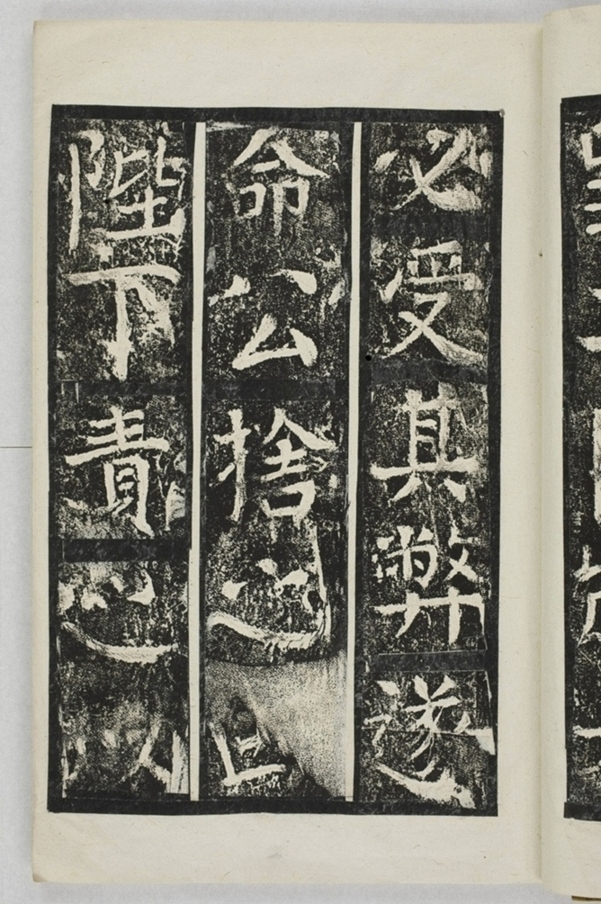 必受其弊遂
命公捨之
陛下責之